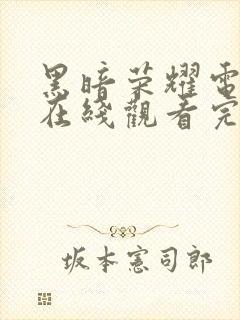 黑暗荣耀電
在綫觀看完
坂本憲司郎